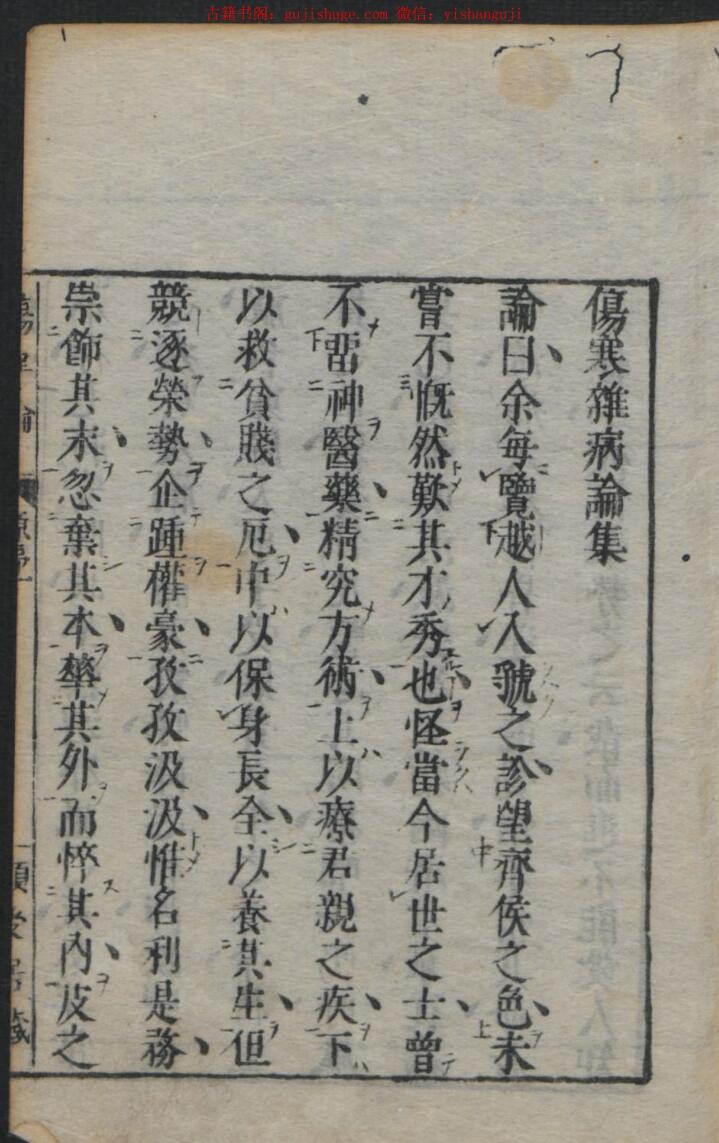 古籍书阁：gujishuge.com 微信：yishanguji
傷寒雜病論集
論曰余每覽越人入虢之診望齊侯之色未
嘗不慨然歎其才秀也怪當今居世之士曾
不畱神醫藥精究方術上以療君親之疾下
以救貧賤之厄中以保身長全以養其生但
競逐榮勢企踵權豪孜孜汲汲惟名利是務
崇飾其末忽棄其本華其外而悴其內皮之